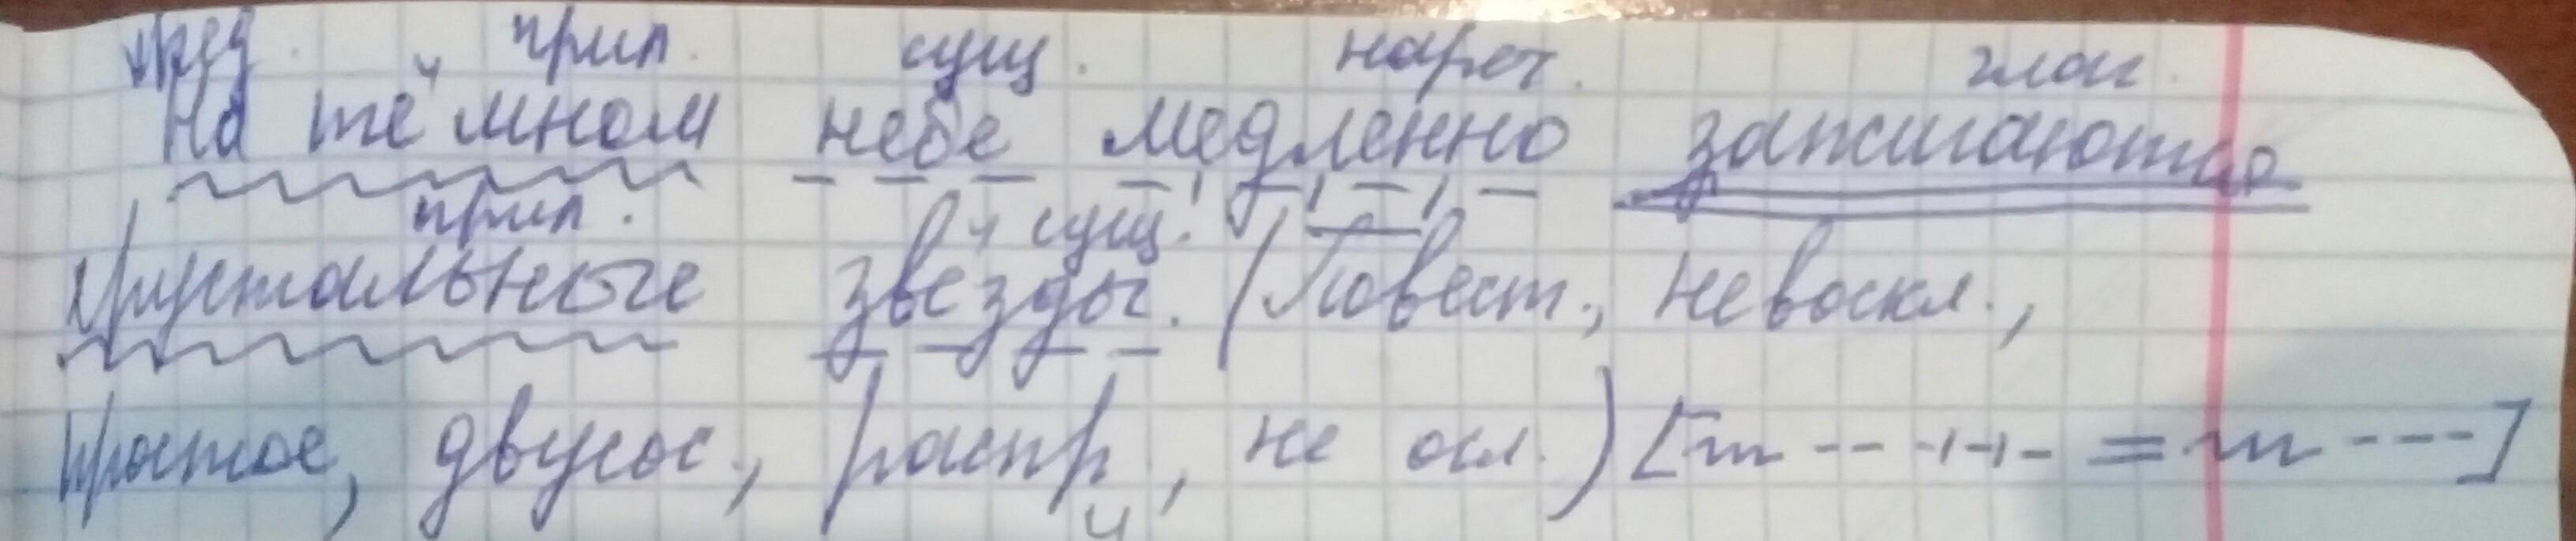 пред. прил. сущ. нареч. глаг.
На тёмном небе медленно зажигаются
прил. сущ.
хрустальные звезды. (Повест., невоскл.,
простое, двусос., распр, не осл.)